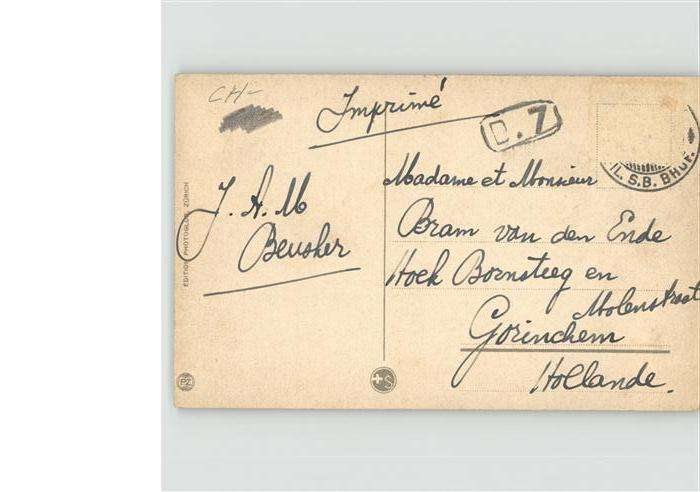 CH-
Imprimé
D.Z
L. S.B. BHOF.
Madame et Monsieur
J. A. M
Bram van den Ende
Beusker
Hoek Bornsteeg en
Molenstraat
Gorinchem
Hollande.
EDITION PHOTOGLOB ZÜRICH
PZ
S